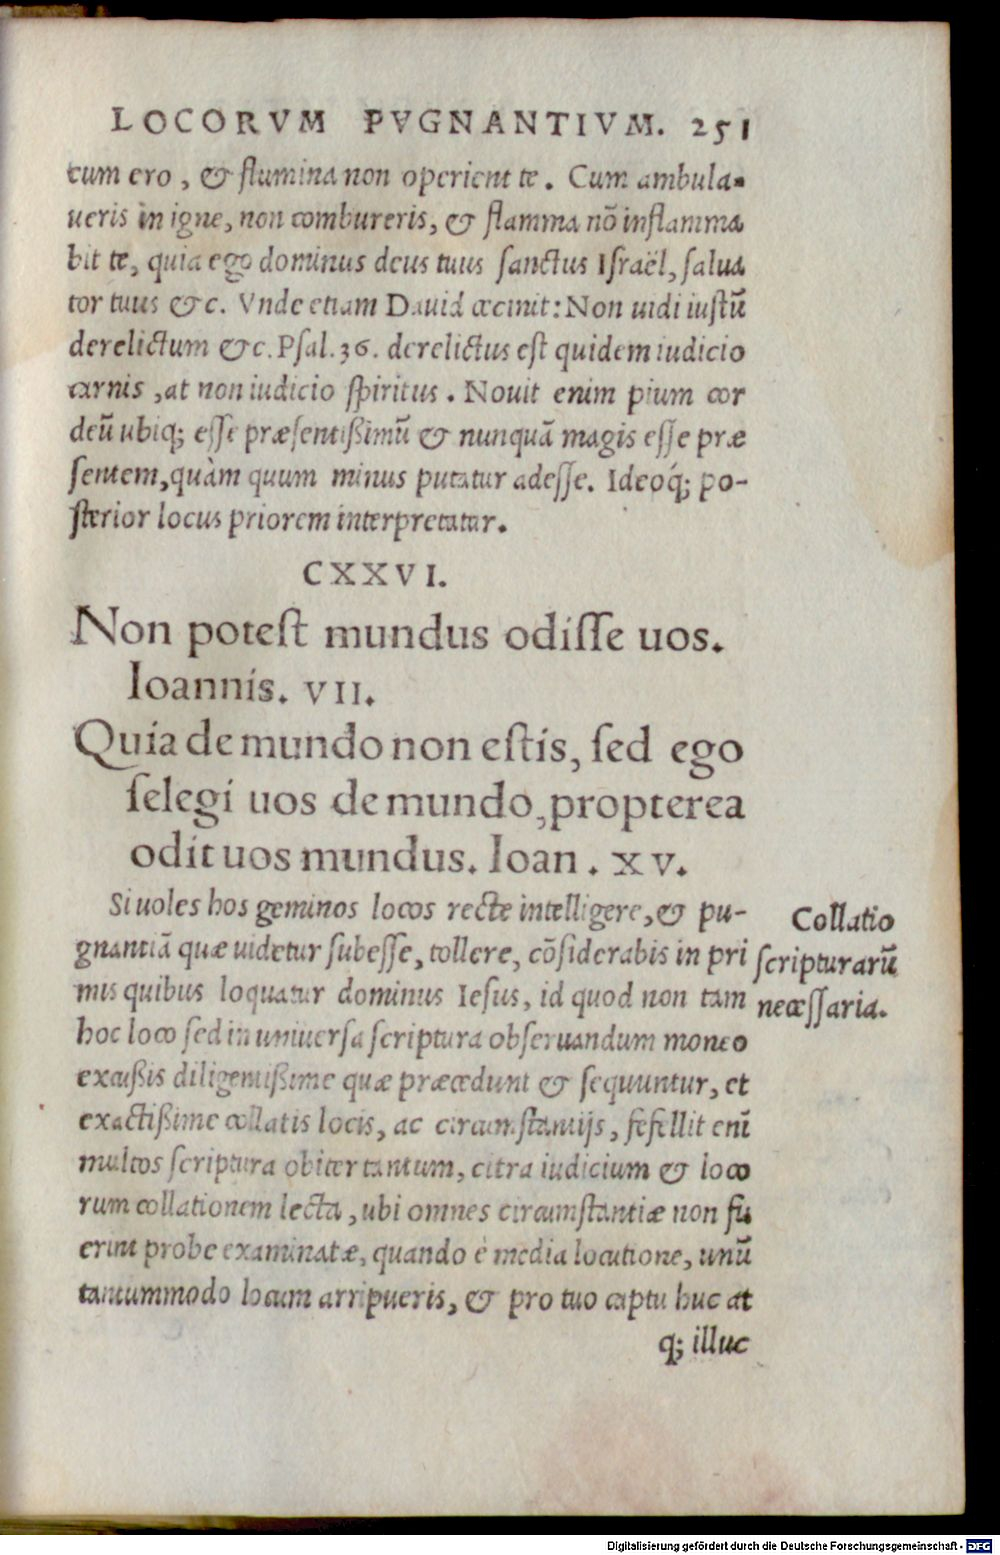 LOCORVM PVGNANTIVM. 251
cum ero, & flumina non operient te. Cum ambula-
ueris in igne, non combureris, & flamma nõ inflamma
bit te, quia ego dominus deus tuus sanctus Israël, salua
tor tuus &c. Vnde etiam Dauid cecinit: Non uidi iustũ
derelictum &c. Psal. 36. derelictus est quidem iudicio
carnis, at non iudicio spiritus. Nouit enim pium cor
deũ ubiq; esse præsentißimũ & nunquã magis esse præ
sentem, quàm quum minus putatur adesse. Ideoq́; po-
sterior locus priorem interpretatur.
CXXVI.
Non potest mundus odisse uos.
Ioannis. VII.
Quia de mundo non estis, sed ego
selegi uos de mundo, propterea
odit uos mundus. Ioan. XV.
Si uoles hos geminos locos recte intelligere, & pu-
gnantiã quæ uidetur subesse, tollere, cõsiderabis in pri
mis quibus loquatur dominus Iesus, id quod non tam
hoc loco sed in uniuersa scriptura obseruandum moneo
excußis diligentißime quæ præcedunt & sequuntur, et
exactißime collatis locis, ac circumstantijs, fefellit enĩ
multos scriptura obiter tantum, citra iudicium & loco
rum collationem lecta, ubi omnes circumstantiæ non fu
erint probe examinatæ, quando è media locutione, unũ
tantummodo locum arripueris, & pro tuo captu huc at
q; illuc
Collatio
scripturarũ
necessaria.
Digitalisierung gefördert durch die Deutsche Forschungsgemeinschaft - DFG